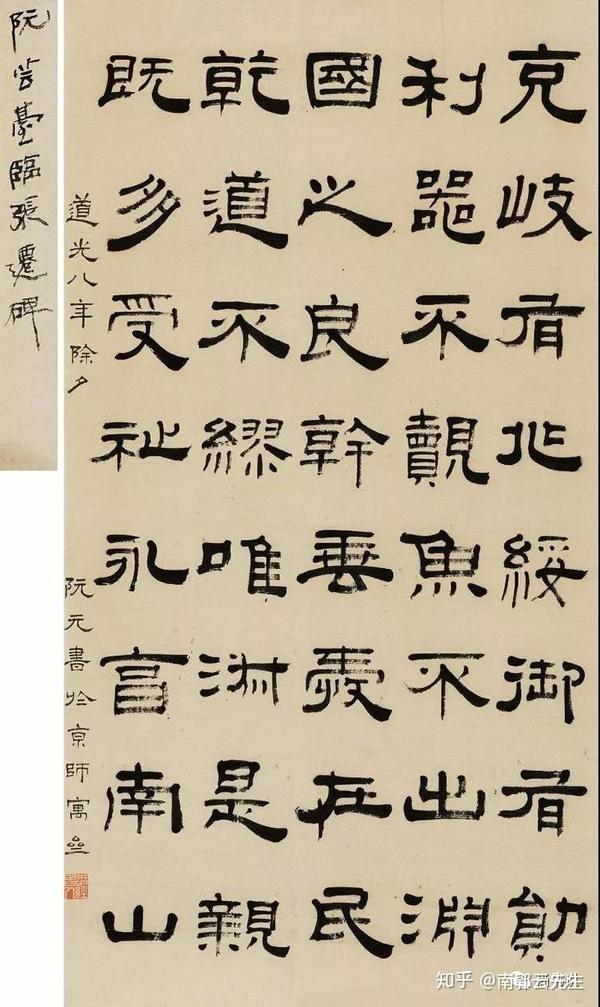 阮芸臺臨張遷碑
克岐有兆綏御有勛
利器不覿魚不出淵
國之良幹垂愛在民
乾道不繆唯淑是親
既多受祉永享南山
道光八年除夕
阮元書於京師寓亝
知乎